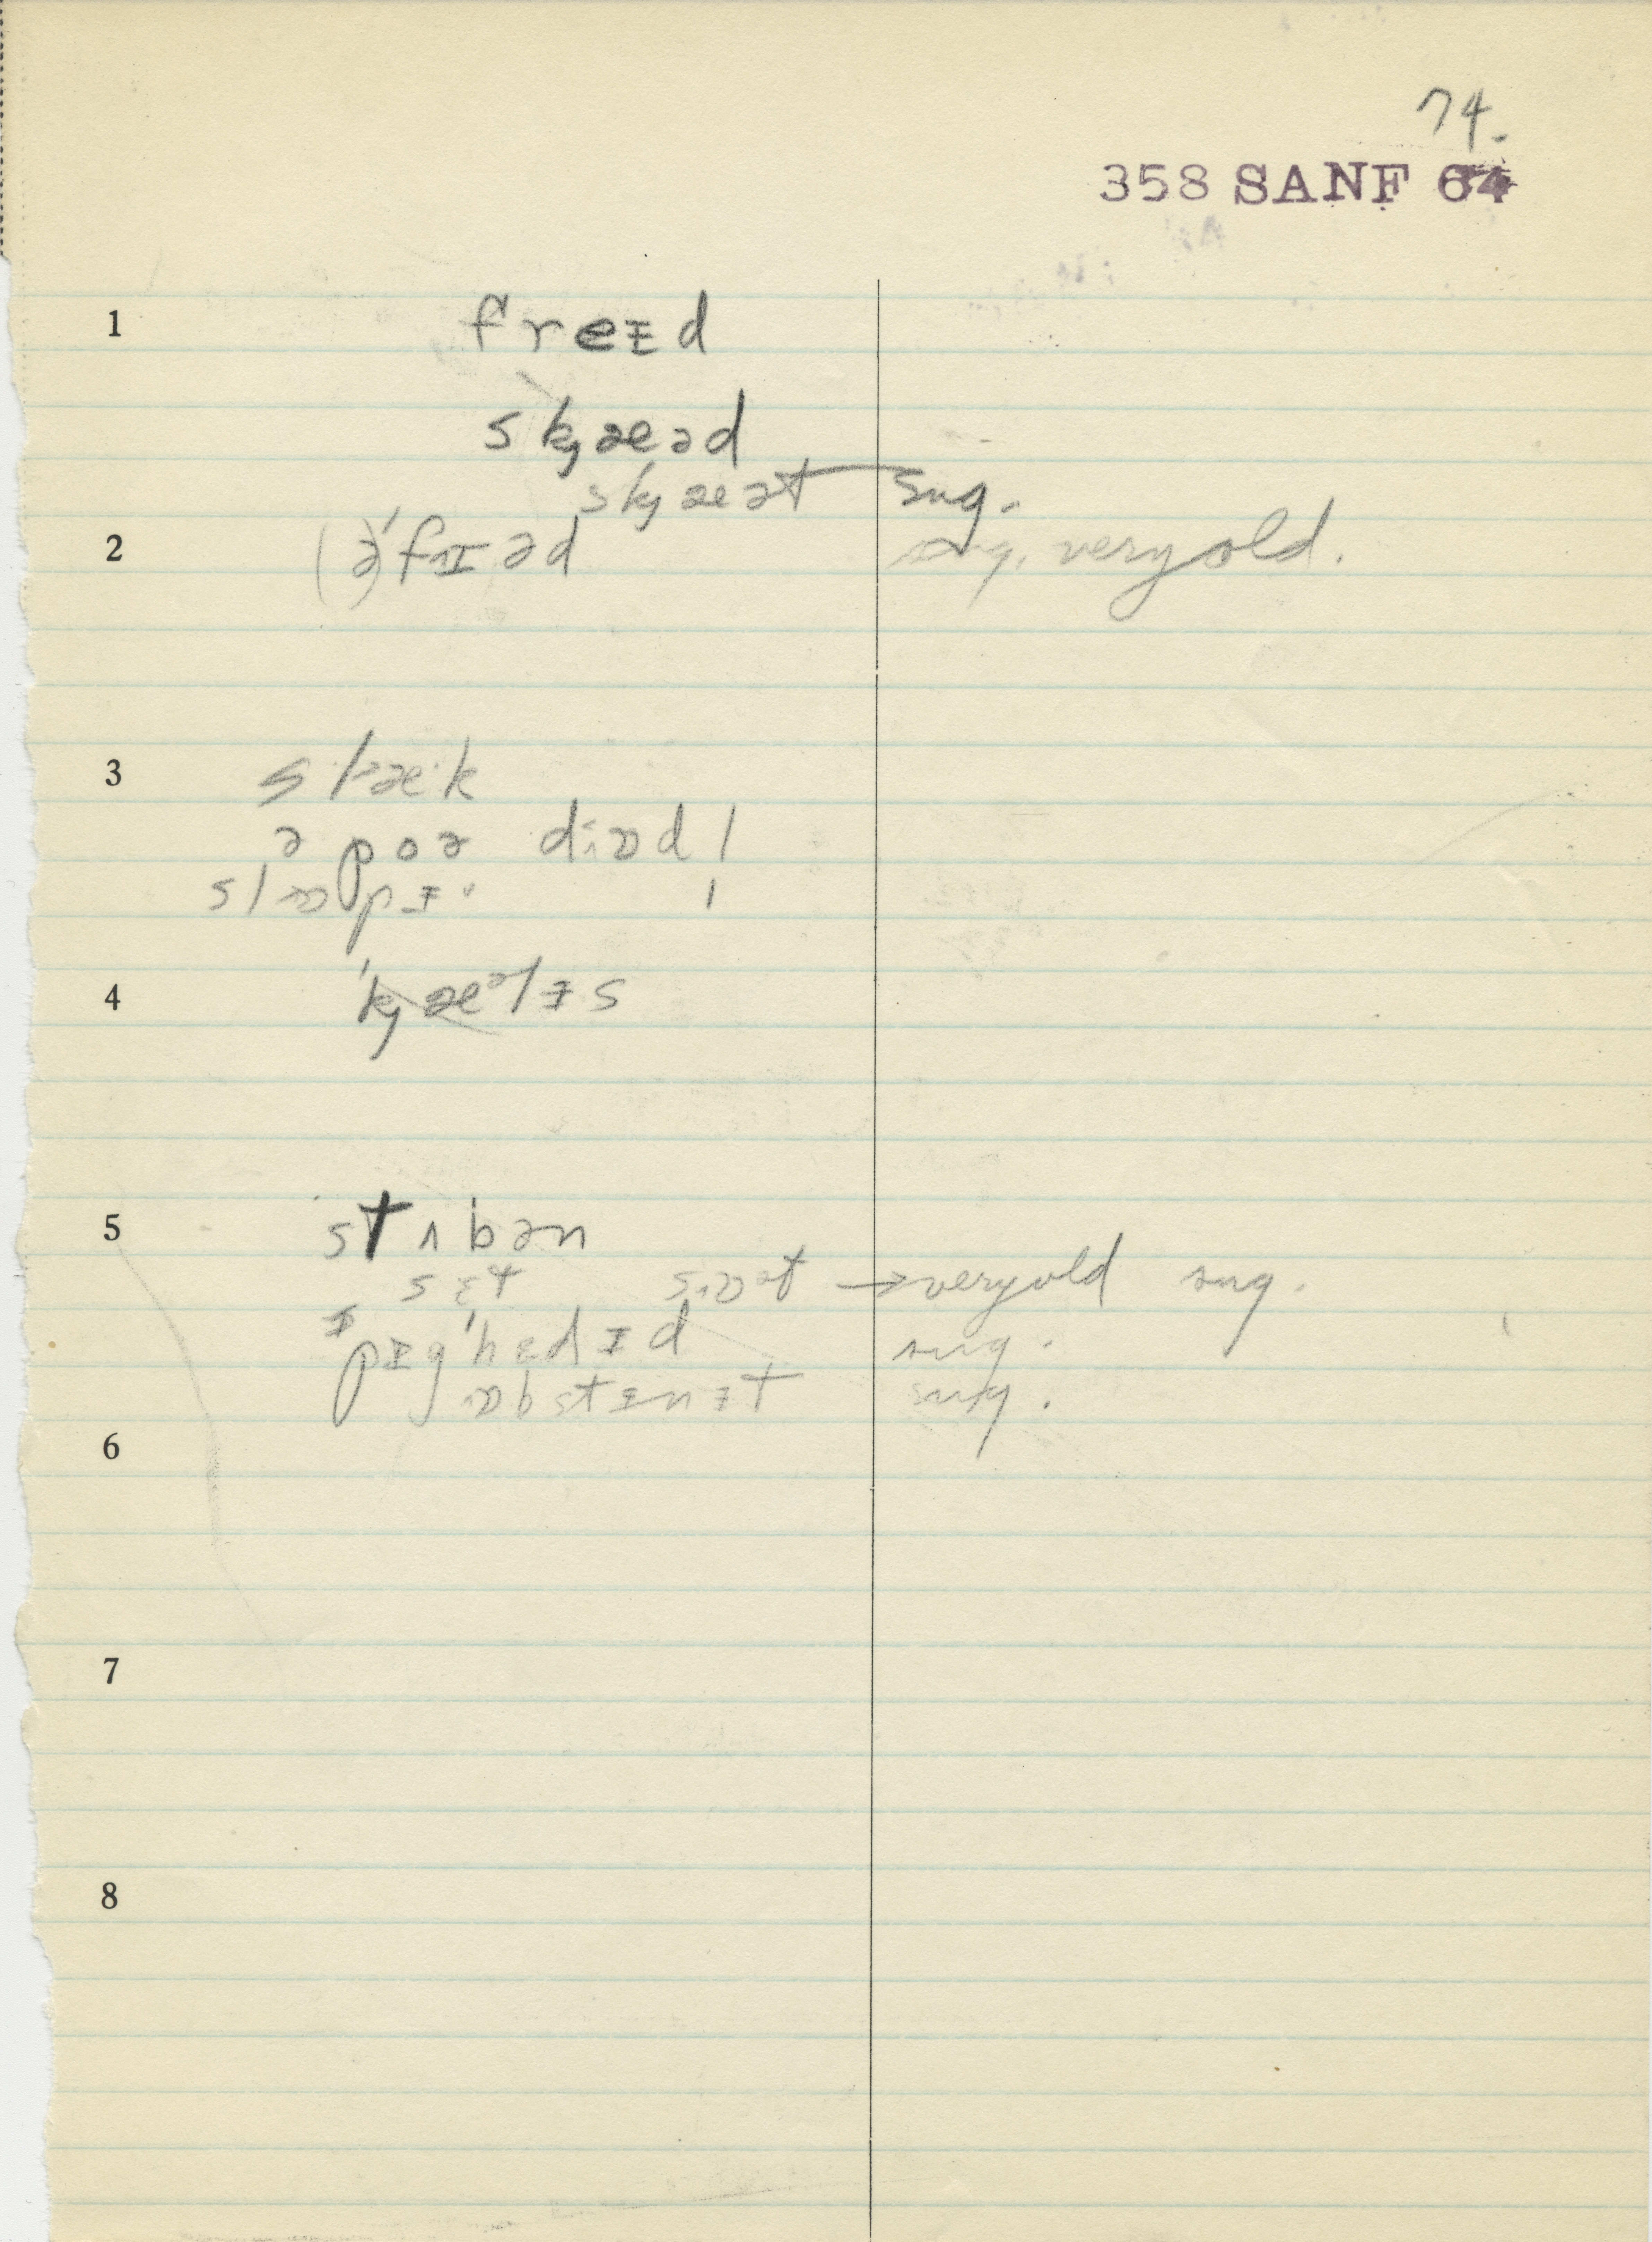 74.
358 SANF 64
1 freɪd
skjæəd
ˈskjæət sug.
2 (ə)ˈfrɪəd sug. very old.
3 slæ·k
ə poə di·ɒd l
slɒpɪ· l
4 ˈkjæəlɪs
5 stʌbən
sɛt sɒət → very old sug.
ˈpɪgˈhɛdɪd sug.
ɒbstɪnɪt sug.
6
7
8